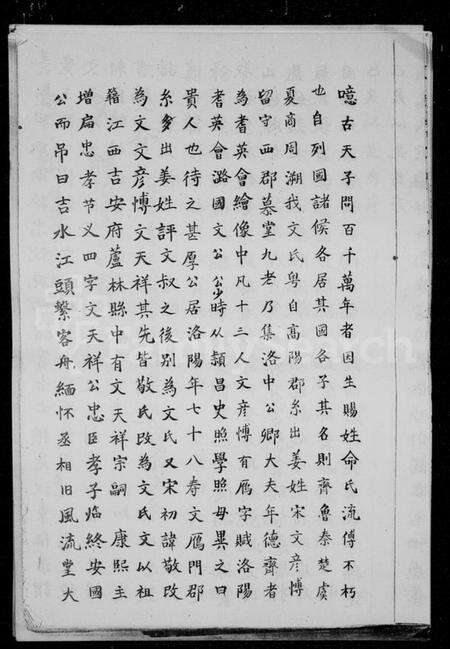 噫古天子問百千萬年者因生賜姓命氏流傅不朽
也自列國諸侯各居其國各子其名則齊魯秦楚虞
夏商周溯我文氏粤自高陽郡系出姜姓宋文彦愽
留守西郡慕堂九老乃集洛中公卿大夫年德齊者
為耆英會繪像中凡十三人文彦愽有雁字賦洛陽
耆英會潞國文公公少時从頴昌史照學照母異之曰
貴人也待之甚厚公居洛陽年七十八寿文雁門郡
系多出姜姓評文叔之後别為文氏又宋初諱敬改
為文文彦愽文天祥其先皆敬氏改為文氏文以祖
籍江西吉安府蘆林縣中有文天祥宗嗣 康熙主
增扁忠孝节义四字文天祥公忠臣孝子临終安國
公而吊曰吉水江頭繫客舟緬怀丞相旧風流豐大